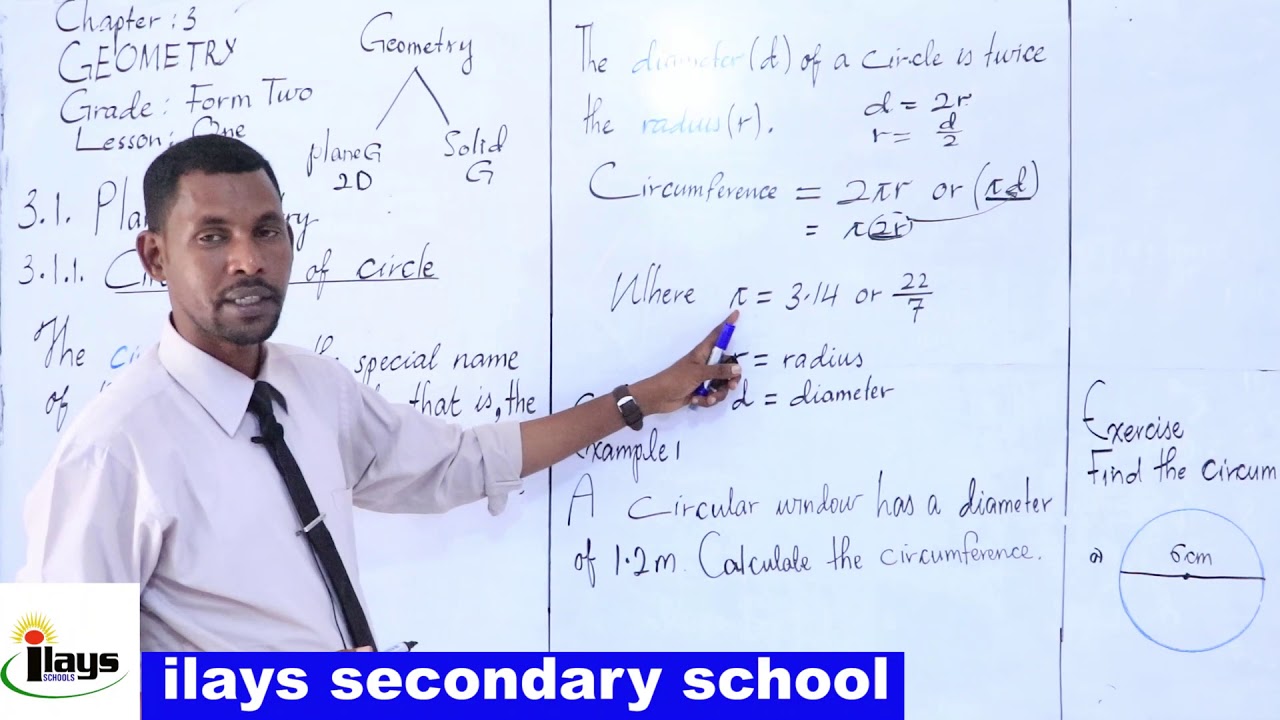 Chapter : 3
GEOMETRY
Grade : Form Two
Lesson: One
Geometry
plane G
2D
Solid
G
3.1.
3.1.1. of circle
The special name
of that is, the
The diameter (d) of a circle is twice
the radius (r).
d = 2r
r = d/2
Circumference = 2πr or (πd)
= π(2r)
Where π = 3.14 or 22/7
r = radius
d = diameter
Example 1
A circular window has a diameter
of 1.2m. Calculate the circumference.
Exercise
Find the circum
a)
6cm
ilays
SCHOOLS
ilays secondary school